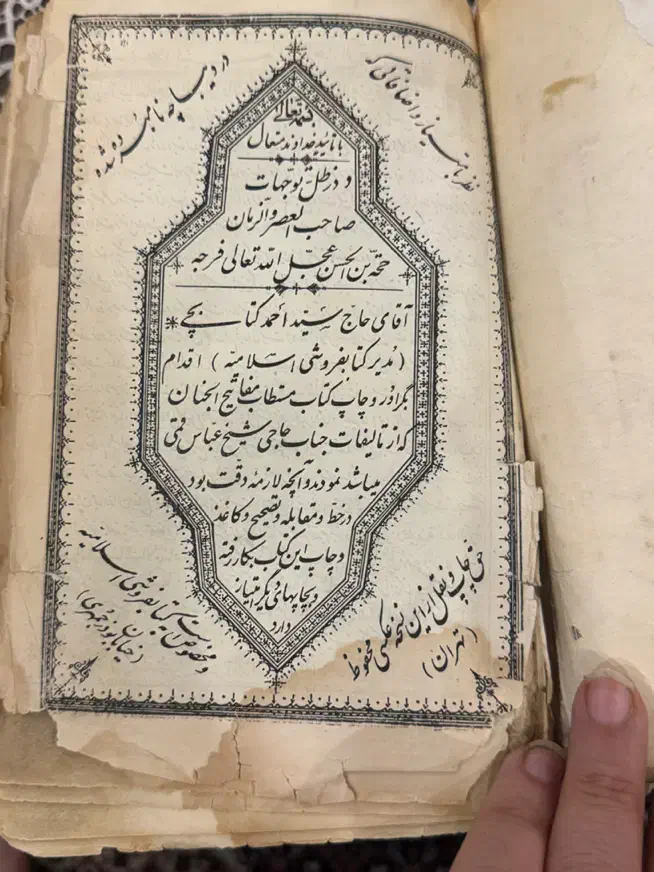 نظر بامتیاز و اضافاتی که
در دیباچه نامبرده شده
بسمه تعالی
با تایید خداوند متعال
و در ظل توجهات
صاحب العصر و الزمان
حجة بن الحسن عجل الله تعالی فرجه
آقای حاج سید احمد کتابچی
(مدیر کتابفروشی اسلامیه) اقدام
بگراور و چاپ کتاب مستطاب مفاتیح الجنان
که از تالیفات جناب حاجی شیخ عباس قمی
میباشد نمودند و آنچه لازمه دقت بود
در خط و مقابله و تصحیح و کاغذ
و چاپ این کتاب بکار رفته
و بچاپهای دیگر امتیاز
دارد
حق چاپ و نقل از این نسخه عکسی محفوظ
(تهران)
و مخصوص است بکتابفروشی اسلامیه
(خیابان بوذرجمهری)